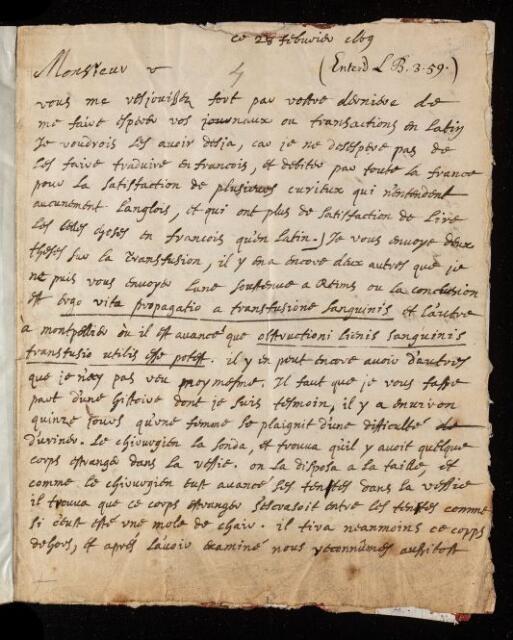 ce 28 februier 1669
Monsieur (Enterd L B. 3. 59.)
vous me resjouissez fort par vostre derniere de
me faire esperer vos journaux ou transactions en latin
Je voudrois les avoir desja, car je ne desespere pas de
les faire traduire en francois, et debiter par toute la france
pour la satisfaction de plusieurs curieux qui n'entendent
aucunement l'anglois, et qui ont plus de satisfaction de lire
les choses en francois qu'en latin.) Je vous envoye deux
theses sur la transfusion, il y en a encore deux autres que je
ne puis vous envoyer l'une soutenue a Reims ou la conclusion
est ergo vitæ propagatio a transfusione sanguinis et l'autre
à montpellier où il est avancé que obstructioni lienis sanguinis
transfusio utilis esse potest. il y en peut encore avoir d'autres
que je n'ay pas veu moy mesme. Il faut que je vous fasse
part d'une histoire dont je suis tesmoin, il y a environ
quinze jours qu'une femme se plaignit d'une difficulté
d'uriner. Le chirurgien la sonda, et trouva qu'il y avoit quelque
corps estranger dans la vessie. on la disposa a la taille, et
comme le chirurgien eut avancé ses tenettes dans la vessie
il trouva que ce corps estranger s'escrasoit entre les tenettes comme
si c'eut esté une mole de chair. il tira neanmoins ce corps
dehors, et aprés l'avoir examiné nous reconnûmes aussitost